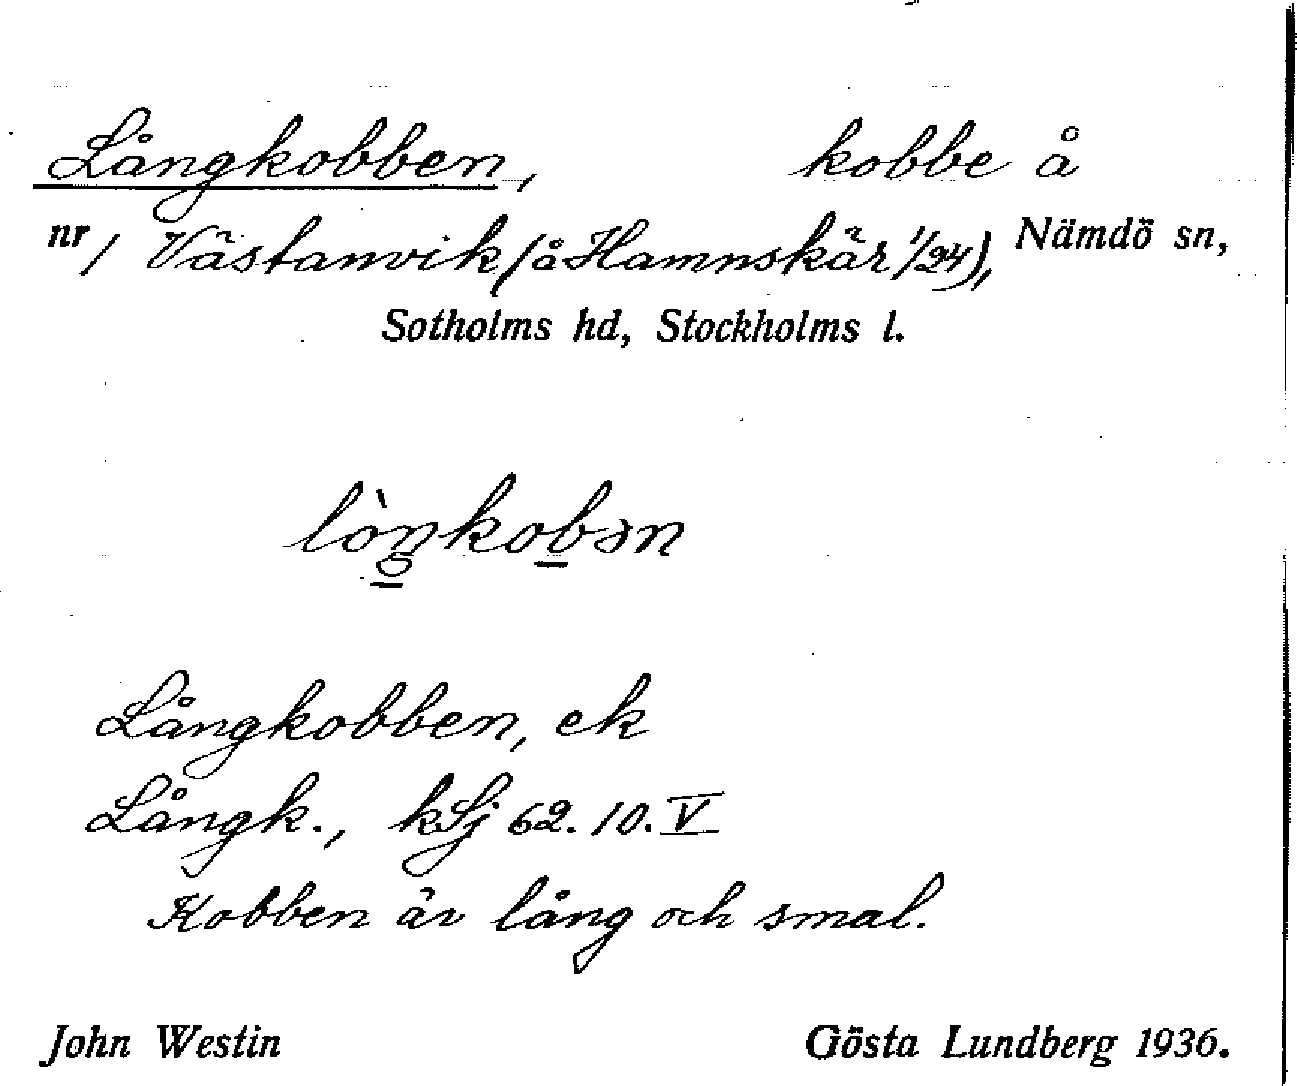 Långkobben, kobbe å
nr / Västanvik (å Hamnskär 1/24), Nämdö sn,
Sotholms hd, Stockholms l.
lòŋkobən
Långkobben, ek
Långk., kSj 62.10.V
Kobben är lång och smal.
John Westin Gösta Lundberg 1936.